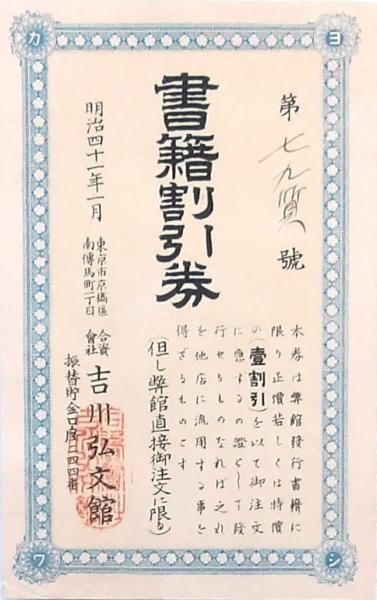 ヨ
シ
カ
ワ
第七九質號
書籍割引券
本券は弊館發行書籍に
限り正價若しくは特價
の(壹割引)を以て御注文
に應ずるの證として發
行せりものなれば之れ
を他店に流用する事を
得ざるものとす
(但し弊館直接御注文に限る)
明治四十一年一月
東京市京橋區
南傳馬町一丁目
合資
會社
吉川弘文館
振替貯金口座二四四番